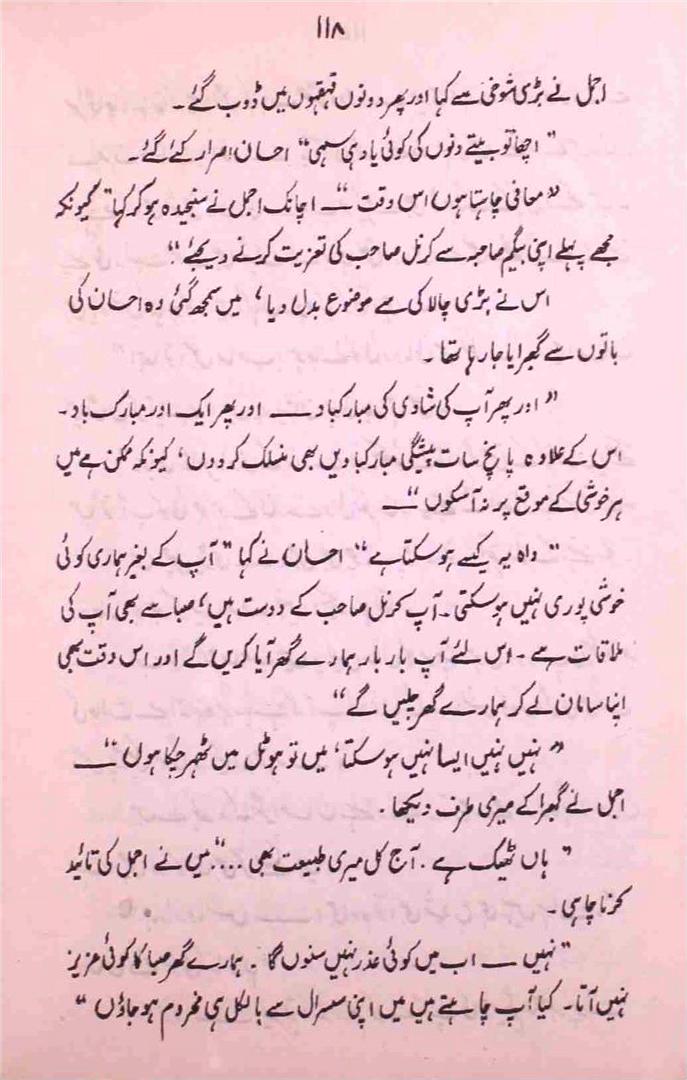 ۱۱۸
اجمل نے بڑی شوخی سے کہا اور پھر دونوں قہقہوں میں ڈوب گئے۔
”اچھا تو بیتے دنوں کی کوئی یاد ہی سہی“ احسان اصرار کئے گئے۔
”معافی چاہتا ہوں اس وقت“ — اچانک اجمل نے سنجیدہ ہو کر کہا ”کیونکہ
مجھے پہلے اپنی بیگم صاحبہ سے کرنل صاحب کی تعزیت کرنے دیجئے“۔
اس نے بڑی چالاکی سے موضوع بدل دیا، میں سمجھ گئی وہ احسان کی
باتوں سے گھبرایا جا رہا تھا۔
”اور پھر آپ کی شادی کی مبارکباد — اور پھر ایک اور مبارک باد۔
اس کے علاوہ پانچ سات پیشگی مبارکبادیں بھی منسلک کر دوں، کیونکہ ممکن ہے میں
ہر خوشی کے موقع پر نہ آسکوں“ —
”واہ یہ کیسے ہو سکتا ہے“ احسان نے کہا ”آپ کے بغیر ہماری کوئی
خوشی پوری نہیں ہو سکتی۔ آپ کرنل صاحب کے دوست ہیں، صبا سے بھی آپ کی
ملاقات ہے۔ اس لئے آپ بار بار ہمارے گھر آیا کریں گے اور اس وقت بھی
اپنا سامان لے کر ہمارے گھر چلیں گے“
”نہیں نہیں ایسا نہیں ہو سکتا، میں تو ہوٹل میں ٹھہر چکا ہوں“ —
اجمل نے گھبرا کے میری طرف دیکھا۔
”ہاں ٹھیک ہے۔ آج کل میری طبیعت بھی ...“ میں نے اجمل کی تائید
کرنا چاہی۔
”نہیں — اب میں کوئی عذر نہیں سنوں گا۔ ہمارے گھر صبا کا کوئی عزیز
نہیں آتا۔ کیا آپ چاہتے ہیں میں اپنی سسرال سے بالکل ہی محروم ہو جاؤں“